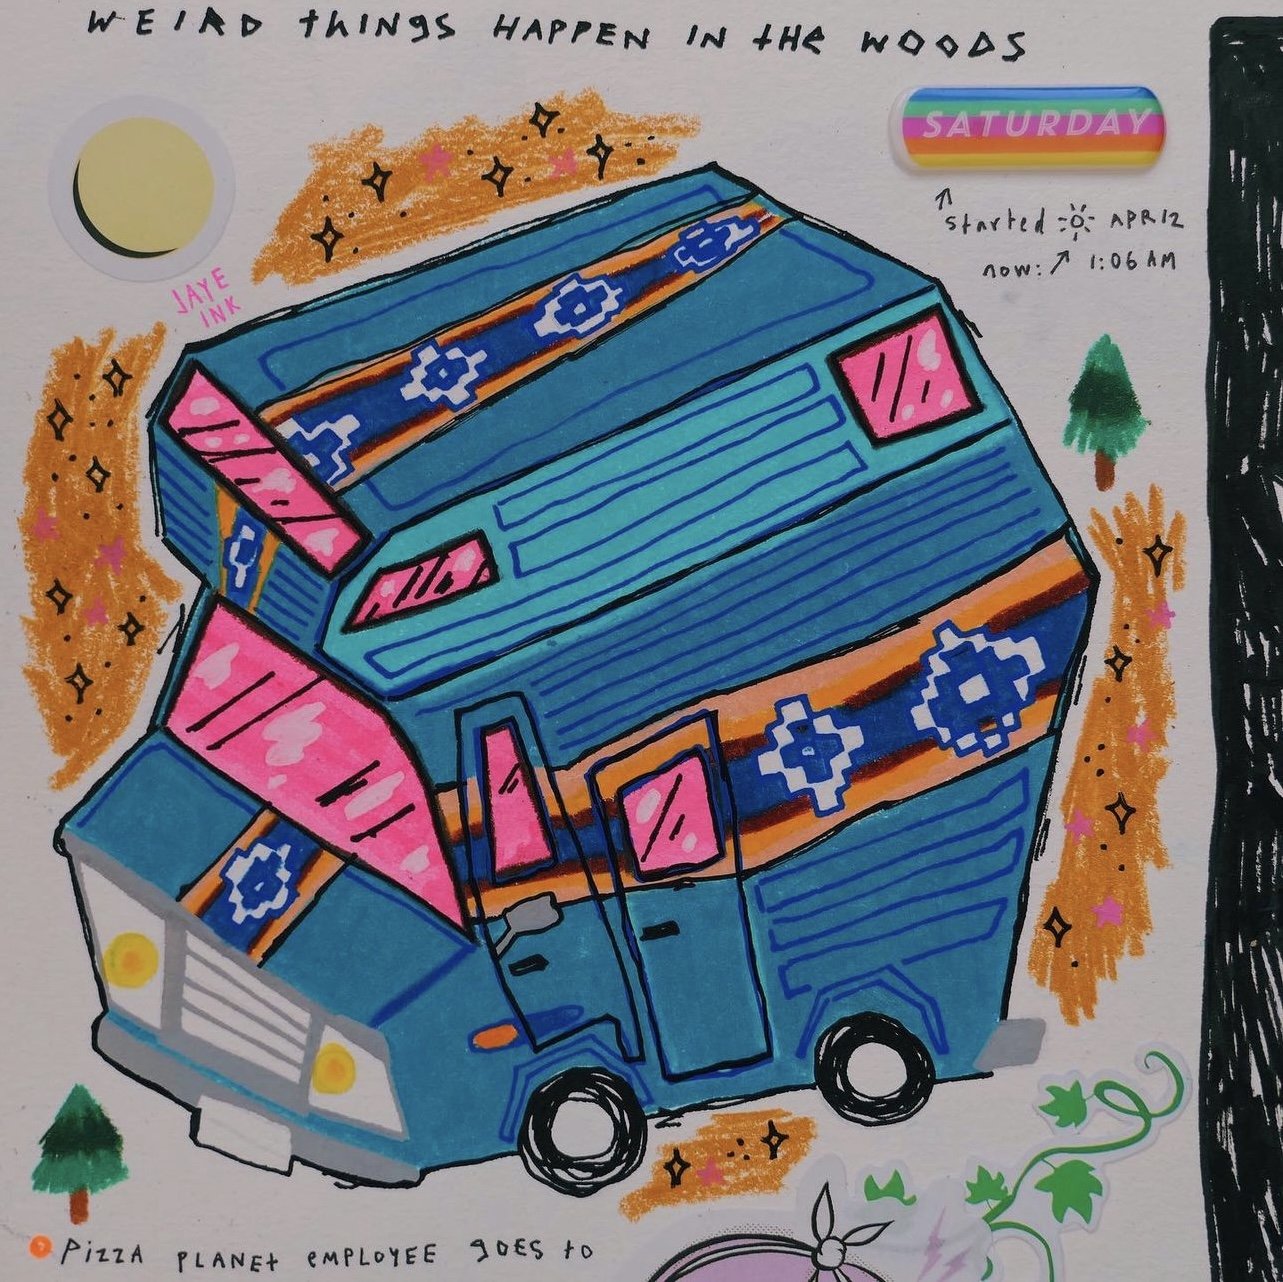 WEIRD thINgS HAPPEN IN thE WOODS
SATURDAY
started APR 12
now: 1:06 AM
JAYE
INK
PIZZA PLANEt EMPLOYEE gOES to